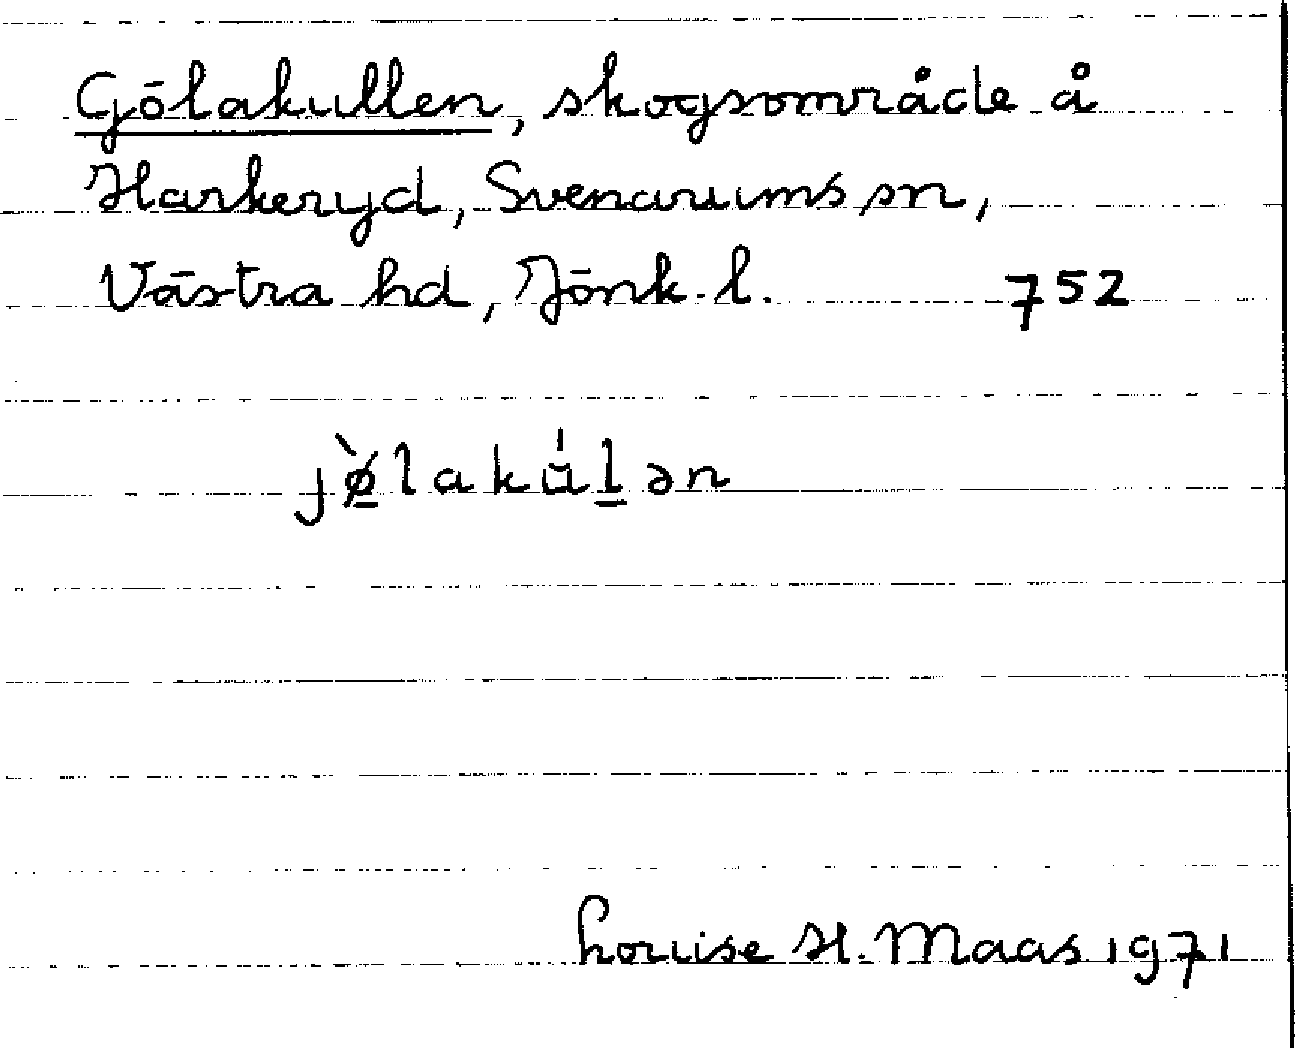 Gölakullen, skogsområde å
Harkeryd, Svenarums sn,
Västra hd, Jönk. l. 752
jø̀lakúlən
Louise H. Maas 1971